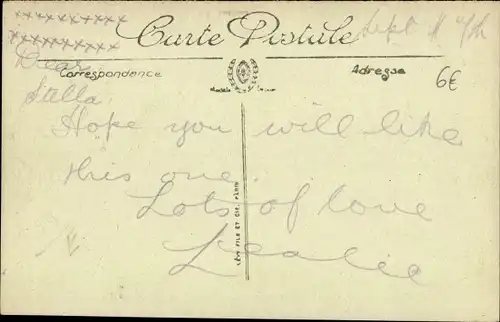 xxxxxxxxxx
xxxxxxxxxx
Carte Postale
Sept 11th
Dear
Correspondance
Adresse
6€
Stella
Hope you will like
this one.
Lots of love
Leslie
LÉVY FILS ET CIE, PARIS